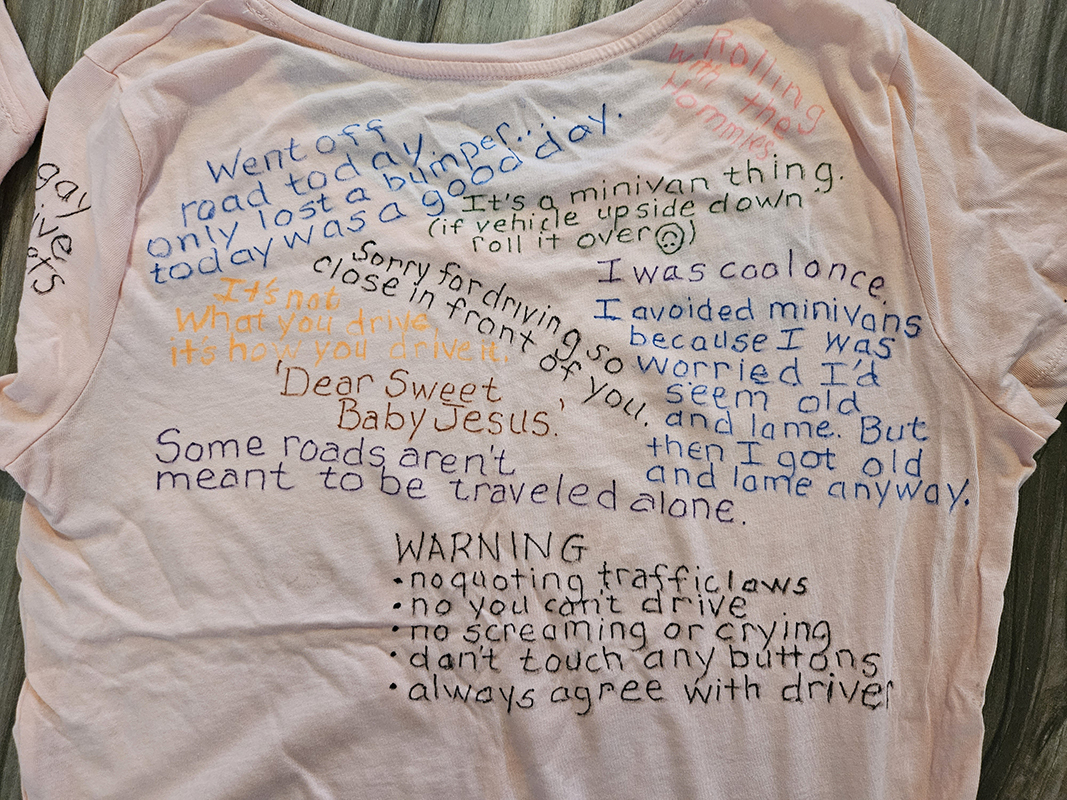 Rolling
with the
Hommies
Went off
road today.
only lost a bumper...
today was a good day.
It's a minivan thing.
(if vehicle upside down
roll it over☹)
gay
Sorry for driving so
close in front of you.
I was cool once.
I avoided minivans
because I was
worried I'd
seem old
and lame. But
then I got old
and lame anyway.
It's not
What you drive,
it's how you drive it.
'Dear Sweet
Baby Jesus.'
Some roads aren't
meant to be traveled alone.
WARNING
•no quoting traffic laws
•no you can't drive
•no screaming or crying
•don't touch any buttons
•always agree with driver